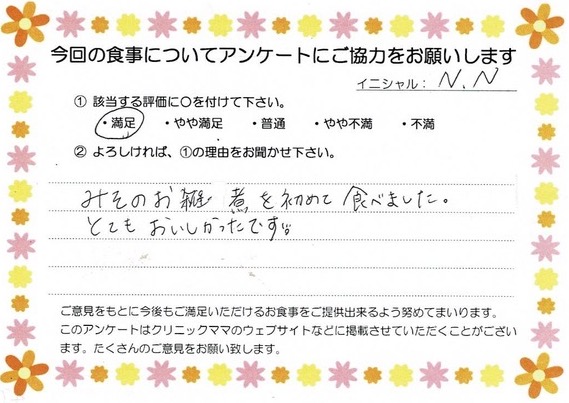 今回の食事についてアンケートにご協力をお願いします
イニシャル： N.N
① 該当する評価に○を付けて下さい。
・満足 ・やや満足 ・普通 ・やや不満 ・不満
② よろしければ、①の理由をお聞かせ下さい。
みそのお雑煮を初めて食べました。
とてもおいしかったです。
ご意見をもとに今後もご満足いただけるお食事をご提供出来るよう努めてまいります。
このアンケートはクリニックママのウェブサイトなどに掲載させていただくことがござい
ます。たくさんのご意見をお願い致します。